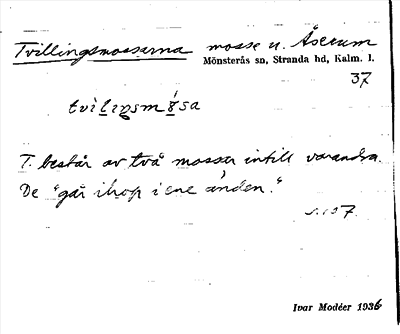 Tvillingsmossarna mosse u. Åserum
Mönsterås sn, Stranda hd, Kalm. l.
37
T. består av två mossar intill varandra.
De "går ihop i ene ånden."
s. 137.
Ivar Modéer 1936